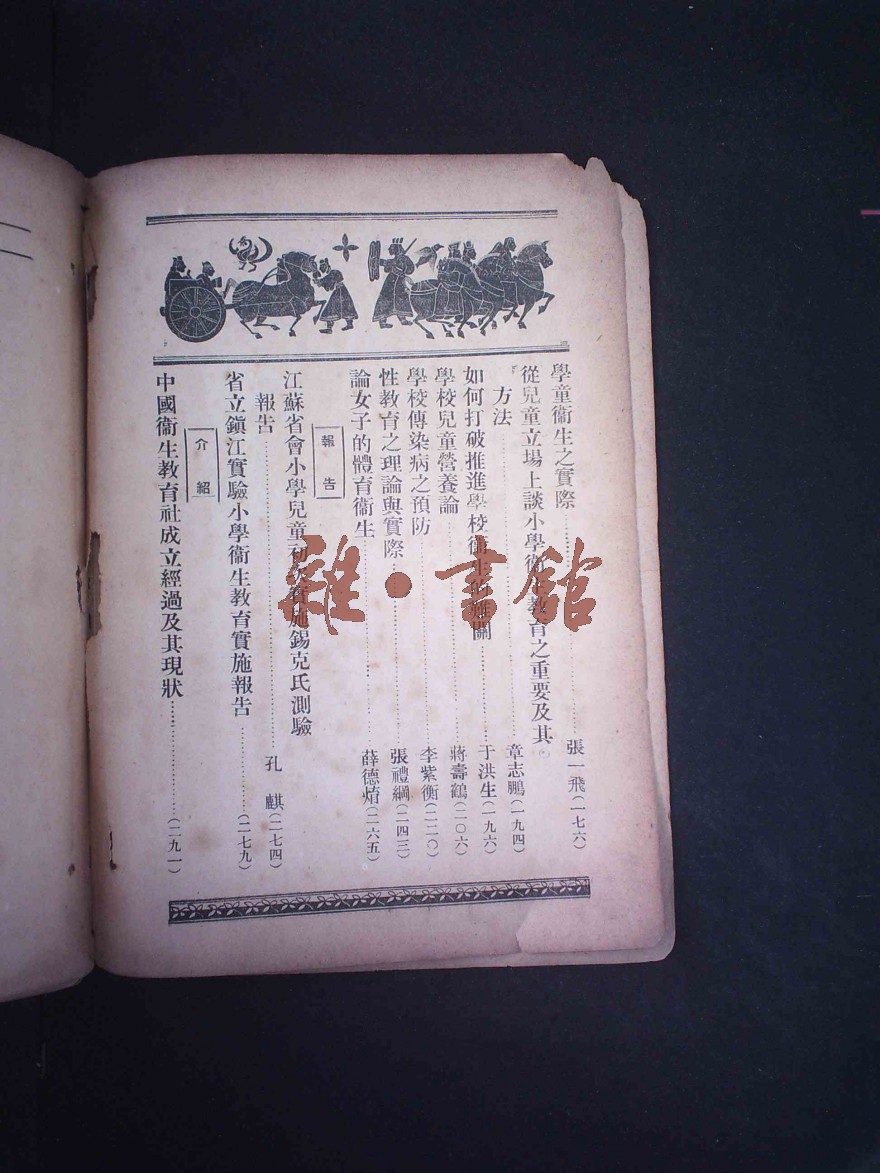 學童衞生之實際……張一飛(一七六)
從兒童立場上談小學衞生教育之重要及其
方法……章志鵬(一九四)
如何打破推進學校衞生的難關……于洪生(一九六)
學校兒童營養論……蔣壽鶴(二〇六)
學校傳染病之預防……李紫衡(二二〇)
性教育之理論與實際……張禮綱(二四三)
論女子的體育衞生……薛德焴(二六五)
報告
江蘇省會小學兒童初次實施錫克氏測驗
報告……孔麒(二七四)
省立鎭江實驗小學衞生教育實施報告……(二七九)
介紹
中國衞生教育社成立經過及其現狀……(二九一)
雜·書館